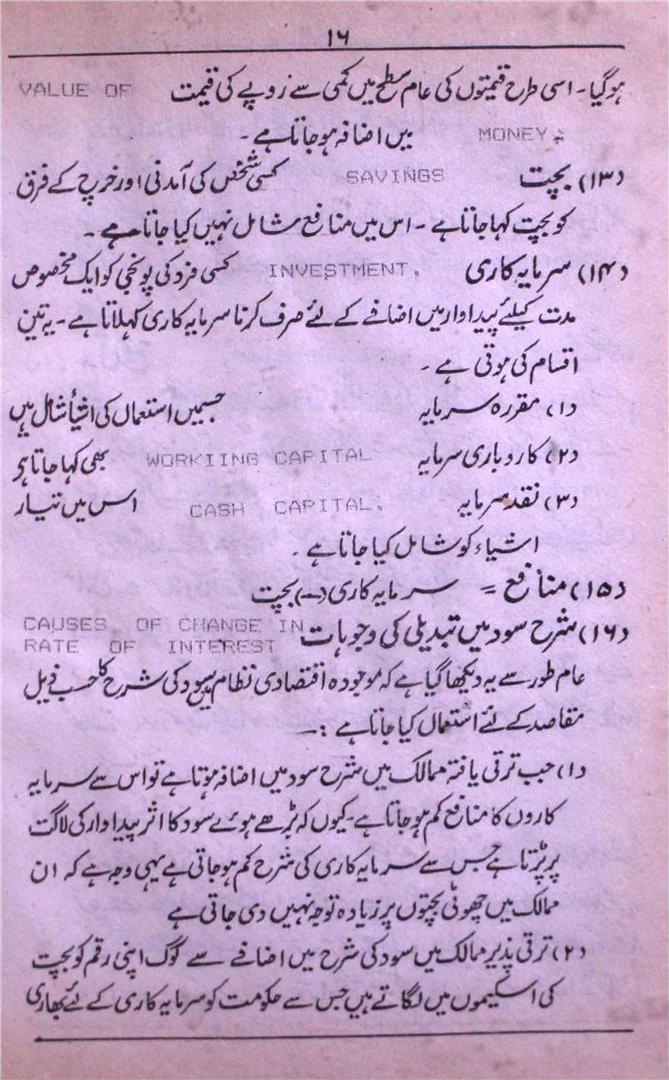 ۱۶
ہوگیا۔ اسی طرح قیمتوں کی عام سطح میں کمی سے زر و پے کی قیمت VALUE OF
MONEY; میں اضافہ ہو جاتا ہے۔
(۱۳) بچت SAVINGS کسی شخص کی آمدنی اور خرچ کے فرق
کو بچت کہا جاتا ہے۔ اس میں منافع شامل نہیں کیا جاتا ہے۔
(۱۴) سرمایہ کاری INVESTMENT, کسی فرد کی پونجی کو ایک مخصوص
مدت کیلئے پیداوار میں اضافے کے لئے صرف کرنا سرمایہ کاری کہلاتا ہے۔ یہ تین
اقسام کی ہوتی ہے۔
(۱) مقررہ سرمایہ جسمیں استعمال کی اشیأ شامل ہیں
(۲) کاروباری سرمایہ WORKIING CAPITAL بھی کہا جاتا ہر
(۳) نقد سرمایہ CASH CAPITAL; اس میں تیار
اشیاء کو شامل کیا جاتا ہے۔
(۱۵) منافع = سرمایہ کاری (-) بچت
(۱۶) شرح سود میں تبدیلی کی وجوہات CAUSES OF CHANGE IN
RATE OF INTEREST
عام طور سے یہ دیکھا گیا ہے کہ موجودہ اقتصادی نظام میں سود کی شرح کا حسب ذیل
مقاصد کے لئے استعمال کیا جاتا ہے :۔
(۱) جب ترقی یافتہ ممالک میں شرح سود میں اضافہ ہوتا ہے تو اس سے سرمایہ
کاروں کا منافع کم ہو جاتا ہے۔ کیوں کہ بڑھے ہوئے سود کا اثر پیداوار کی لاگت
پر پڑتا ہے جس سے سرمایہ کاری کی شرح کم ہو جاتی ہے یہی وجہ ہے کہ ان
ممالک میں چھوٹی بچتوں پر زیادہ توجہ نہیں دی جاتی ہے
(۲) ترقی پذیر ممالک میں سود کی شرح میں اضافے سے لوگ اپنی رقم کو بچت
کی اسکیموں میں لگاتے ہیں جس سے حکومت کو سرمایہ کاری کے لئے بھاری